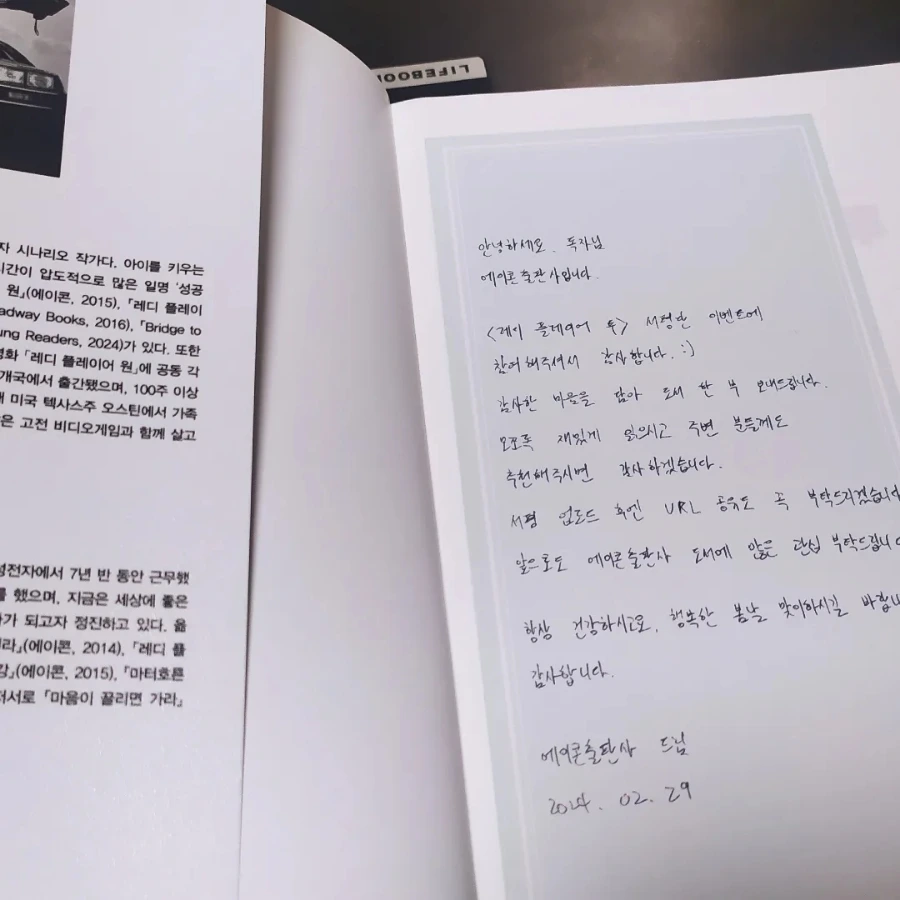 LIFEBOOK
자 시나리오 작가다. 아이를 키우는
시간이 압도적으로 많은 일명 '성공
원』(에이콘, 2015), 『레디 플레이
adway Books, 2016), 『Bridge to
ung Readers, 2024)가 있다. 또한
영화 「레디 플레이어 원」에 공동 각
개국에서 출간됐으며, 100주 이상
재 미국 텍사스주 오스틴에서 가족
은 고전 비디오게임과 함께 살고
성전자에서 7년 반 동안 근무했
를 했으며, 지금은 세상에 좋은
가 되고자 정진하고 있다. 옮
라』(에이콘, 2014), 『레디 플
강』(에이콘, 2015), 『마터호른
저서로 『마음이 끌리면 가라』
안녕하세요. 독자님
에이콘출판사입니다.
<레이 플레이어 투> 서평단 이벤트에
참여해주셔서 감사합니다. :)
감사한 마음을 담아 도서 한 부 보내드립니다.
모쪼록 재밌게 읽으시고 주변 분들께도
추천해주시면 감사하겠습니다.
서평 업로드 후엔 URL 공유도 꼭 부탁드리겠습니다
앞으로도 에이콘출판사 도서에 많은 관심 부탁드립니다
항상 건강하시고요, 행복한 봄날 맞이하시길 바랍니
감사합니다.
에이콘출판사 드림
2024. 02. 29